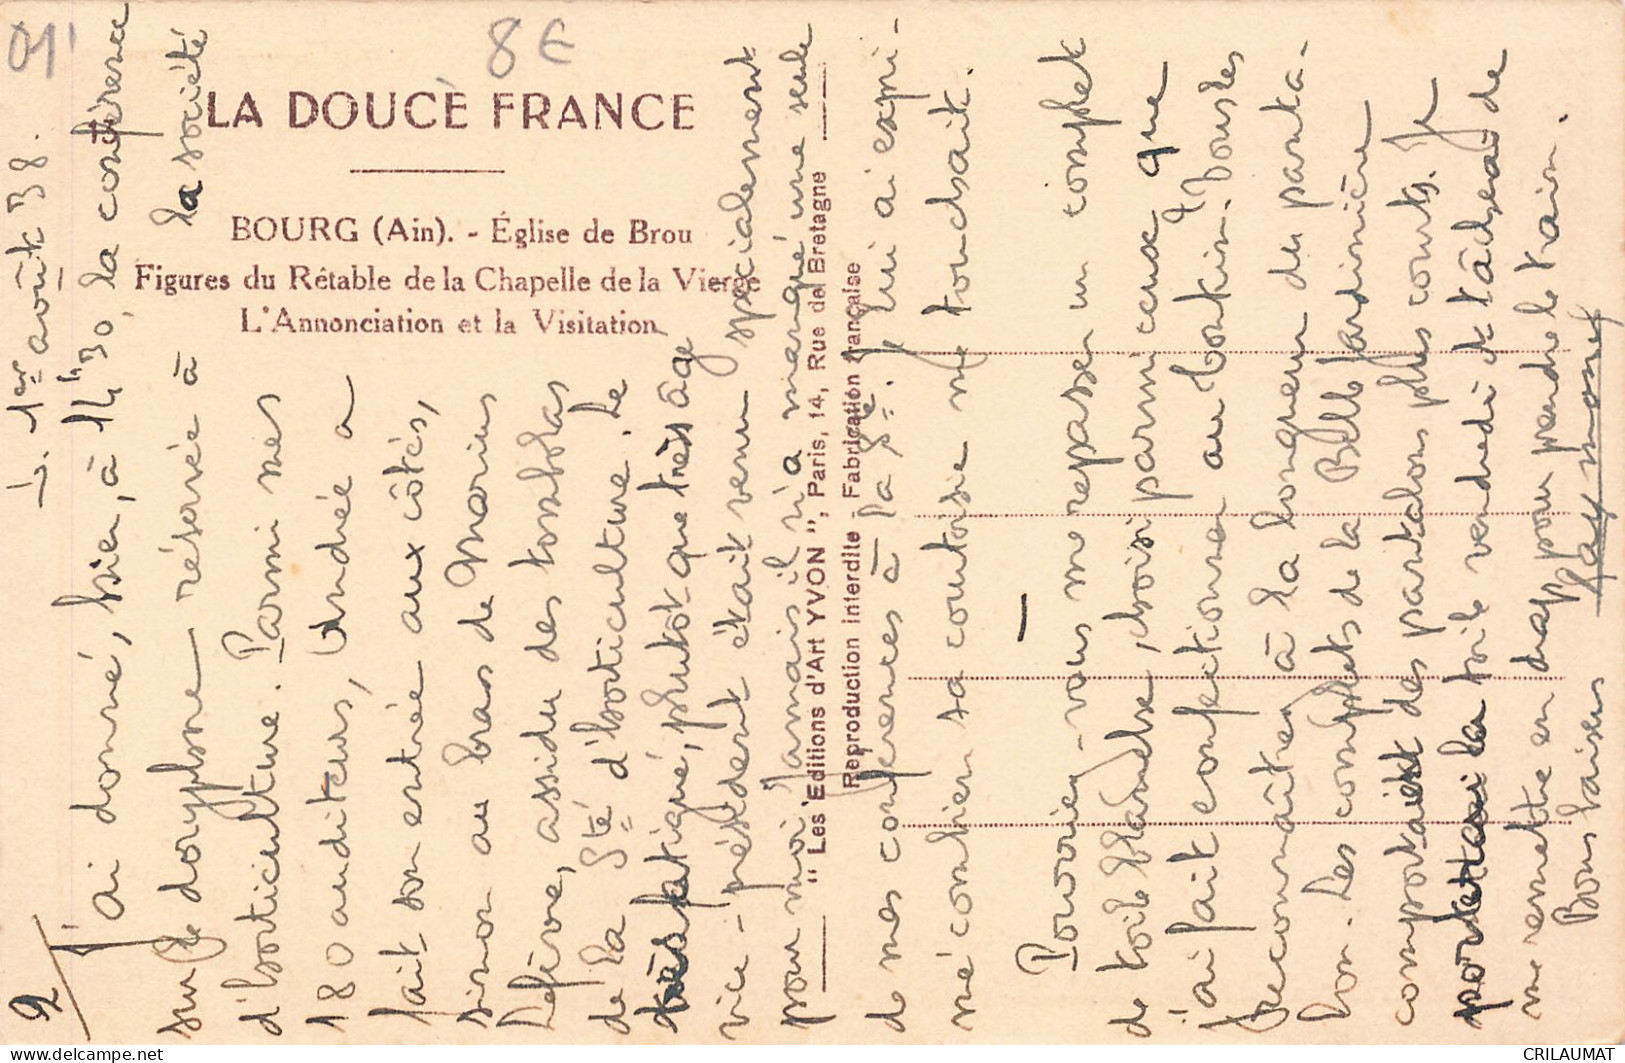 01'
8 €
LA DOUCE FRANCE
BOURG (Ain). - Église de Brou
Figures du Rétable de la Chapelle de la Vierge
L'Annonciation et la Visitation
" Les Editions d'Art YVON ", Paris, 14, Rue de Bretagne
Reproduction interdite - Fabrication française
2/
L. 1er août 38.
J'ai donné, hier, à 14h30, la conférence
sur le doryphore réservée à la société
d'horticulture. Parmi mes
180 auditeurs, Andrée a
fait son entrée aux côtés,
sinon au bras de Marius
Lefèvre, assidu des tombolas
de la Sté d'horticulture. Le
très fatigué, plutôt que très âgé
vice-président était venu spécialement
pour moi. Jamais il n'a manqué une seule
de mes conférences à la Sté. Je lui ai expri-
mé combien sa courtoisie me touchait.
—
Pourriez-vous me repasser un complet
de toile blanche, choisi parmi ceux que
j'ai fait confectionner au Tonkin. Vous les
reconnaîtrez à la longueur du panta-
lon. Les complets de la Belle Jardinière
comportaient des pantalons plus courts. Je
porterai la toile vendredi et tâcherai de
me remettre en drap pour prendre le train.
Bons baisers Raymond
CRILAUMAT
delcampe.net